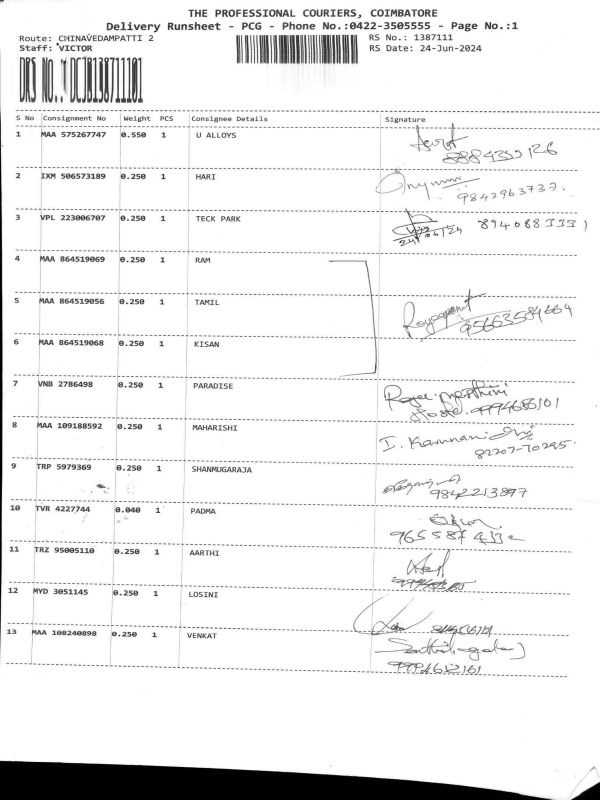 THE PROFESSIONAL COURIERS, COIMBATORE
Delivery Runsheet - PCG - Phone No.:0422-3505555 - Page No.:1
Route: CHINAVEDAMPATTI 2 RS No.: 1387111
Staff: VICTOR RS Date: 24-Jun-2024
DRS NO.: DCJB138711101
S No Consignment No Weight PCS Consignee Details Signature
1 MAA 575267747 0.550 1 U ALLOYS
2 IXM 506573189 0.250 1 HARI
9842963732.
3 VPL 223006707 0.250 1 TECK PARK
24/06/24
4 MAA 864519069 0.250 1 RAM
5 MAA 864519056 0.250 1 TAMIL
95663584664
6 MAA 864519068 0.250 1 KISAN
7 VNB 2786498 0.250 1 PARADISE
9994686101
8 MAA 109188592 0.250 1 MAHARISHI
82207-70295
9 TRP 5979369 0.250 1 SHANMUGARAJA
9842213897
10 TVR 4227744 0.040 1 PADMA
965587 4332
11 TRZ 95005110 0.250 1 AARTHI
12 MYD 3051145 0.250 1 LOSINI
13 MAA 108240898 0.250 1 VENKAT
9994612161